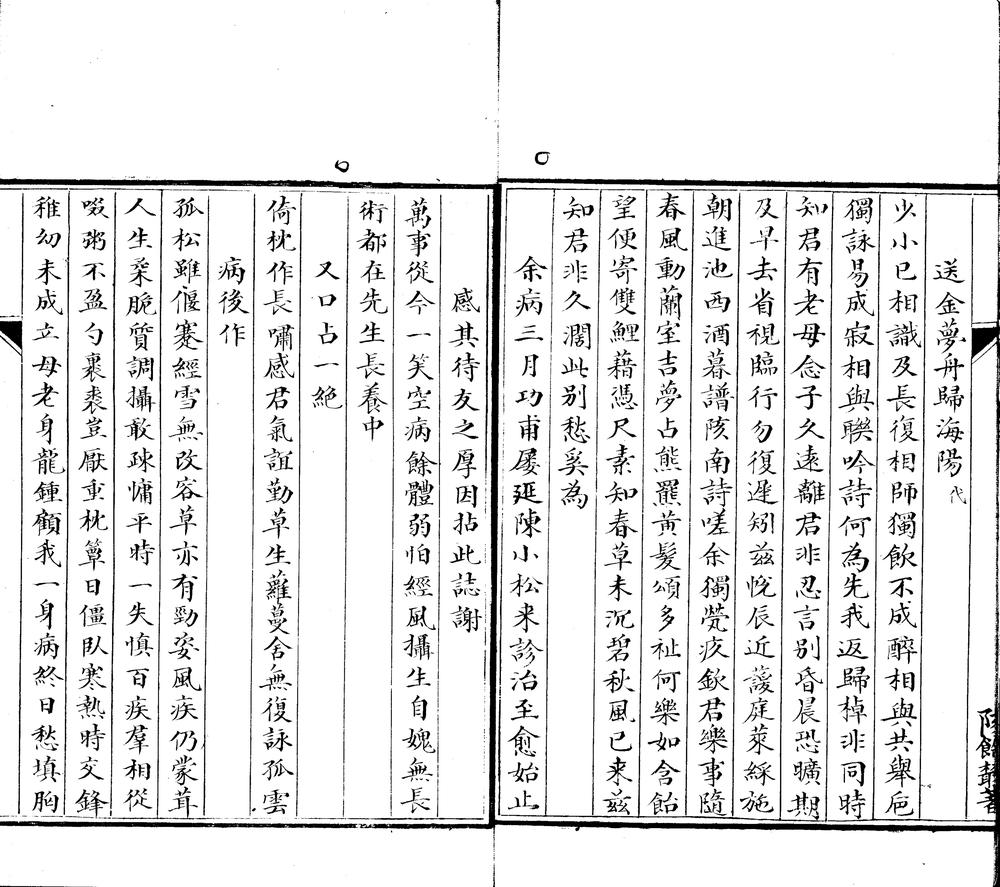 送金夢舟歸海陽 代
少小已相識及長復相師獨飲不成醉相與共舉卮
獨詠易成寂相與聯吟詩何為先我返歸棹非同時
知君有老母念子久遠離君非忍言別昏晨恐曠期
及早去省視臨行勿復遲矧兹悅辰近護庭萊綵施
朝進池西酒暮譜陔南詩嗟余獨煢疚欽君樂事隨
春風動蘭室吉夢占熊羆黃髮頌多祉何樂如含飴
望便寄雙鯉藉憑尺素知春草未沉碧秋風已来兹
知君非久濶此别愁奚為
余病三月功甫屢延陳小松来診治至愈始止
感其待友之厚因拈此誌謝
萬事從今一笑空病餘體弱怕經風攝生自媿無長
術都在先生長養中
又口占一絕
倚枕作長嘯感君氣誼勤草生蘿蔓舍無復詠孤雲
病後作
孤松雖偃蹇經雪無改容草亦有勁姿風疾仍蒙茸
人生桑脆質調攝敢疎慵平時一失慎百疾羣相從
啜粥不盈勺裹裘豈厭重枕簟日僵臥寒熱時交鋒
稚幼未成立母老身龍鍾顧我一身病終日愁填胸